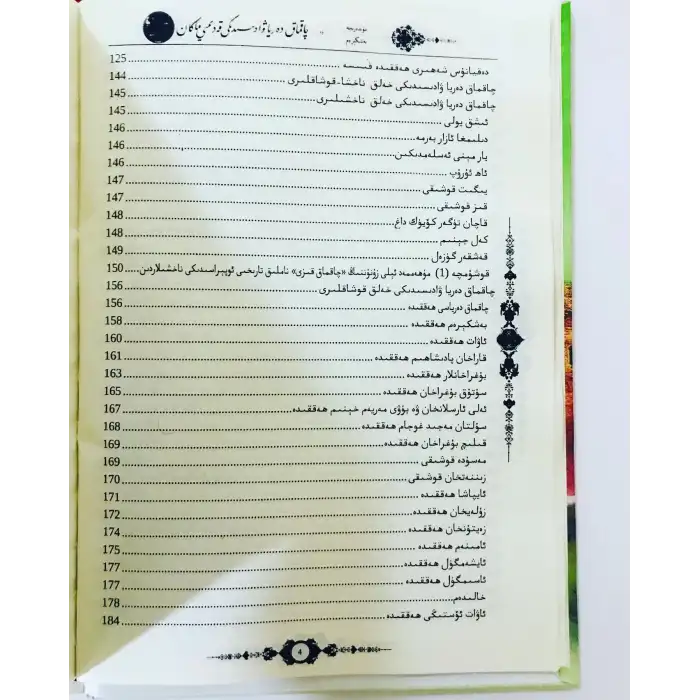 چاقماق دەرياۋادىسىدىكى قەدىمىي ماكان
مۇندەرىجە
بەشكېرەم
دەقيانۇس شەھىرى ھەققىدە قىسسە 125
چاقماق دەريا ۋادىسىدىكى خەلق ناخشا-قوشاقلىرى 144
چاقماق دەريا ۋادىسىدىكى خەلق ناخشىلىرى 145
ئىشق يولى 145
دىلىمغا ئازار بەرمە 146
يار مېنى ئەسلەمدىكىن 146
ئاھ ئۇرۇپ 146
يىگىت قوشىقى 147
قىز قوشىقى 147
قاچان تۈگەر كۆيۈك داغ 148
كەل جېنىم 148
قەشقەر گۈزەل 149
قوشۇمچە (1) مۇھەممەد ئېلى زۇنۇننىڭ «چاقماق قىزى» ناملىق تارىخىي ئوپېراسىدىكى ناخشىلاردىن 150
چاقماق دەريا ۋادىسىدىكى خەلق قوشاقلىرى 156
چاقماق دەرياسى ھەققىدە 156
بەشكېرەم ھەققىدە 158
ئاۋات ھەققىدە 160
قاراخان پادىشاھىم ھەققىدە 161
بۇغراخانلار ھەققىدە 163
سۇتۇق بۇغراخان ھەققىدە 165
ئەلى ئارسلانخان ۋە بۇۋى مەريەم خېنىم ھەققىدە 167
سۇلتان مەجىد غوجام ھەققىدە 168
قىلىچ بۇغراخان ھەققىدە 169
مەسۇدە قوشىقى 169
زىننەتخان قوشىقى 170
ئايپاشا ھەققىدە 171
زۇلەيخان ھەققىدە 172
زەيتۇنخان ھەققىدە 174
ئامىنەم ھەققىدە 175
ئايشەمگۈل ھەققىدە 177
ئاسىمگۈل ھەققىدە 177
خالىدەم 178
ئاۋات ئۆستىڭى ھەققىدە 184
4